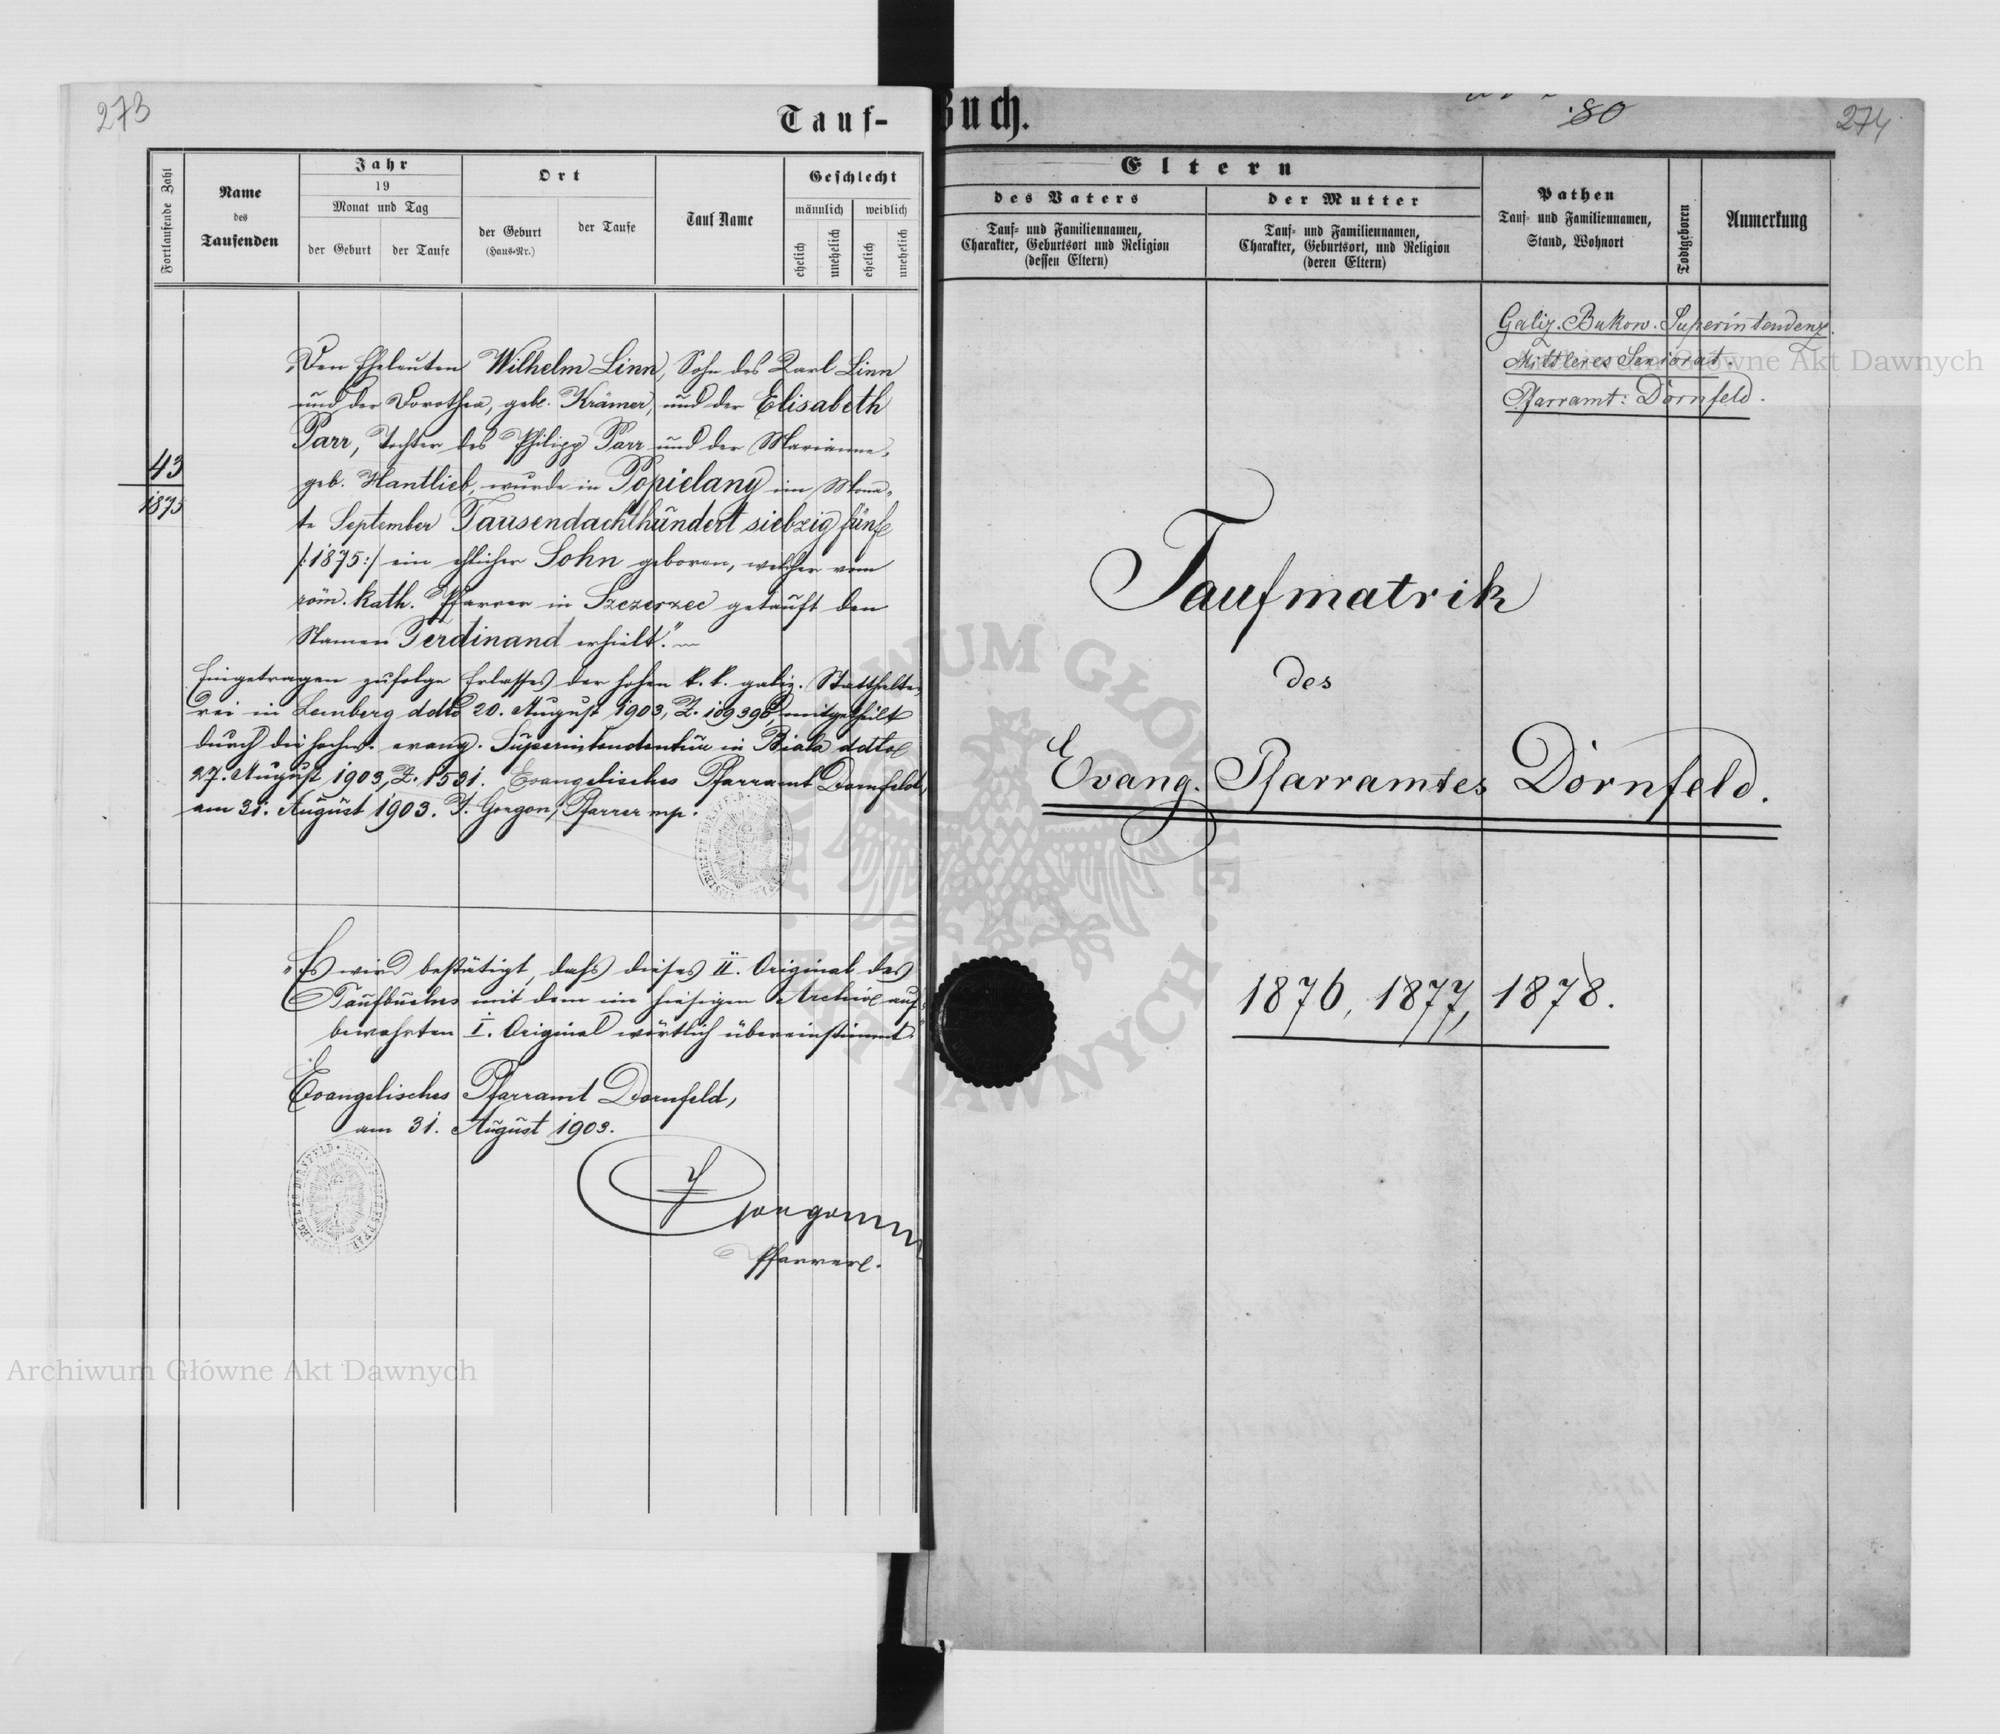 273
Tauf-
Fortlaufende Zahl
Name
des
Taufenden
Jahr
19
Monat und Tag
der Geburt
der Taufe
Ort
der Geburt
(Haus-Nr.)
der Taufe
Tauf Name
Geschlecht
männlich
weiblich
ehelich
unehelich
ehelich
unehelich
43
1875
„Den Eheleuten Wilhelm Linn, Sohn des Karl Linn
und der Dorothea, geb. Krämer, und der Elisabeth
Parr, Tochter des Philipp Parr und der Marianne,
geb. Hantlieb, wurde in Popielany im Mona-
te September Tausendachthundert siebzig fünf
/:1875:/ ein ehlicher Sohn geboren, welcher vom
röm. kath. Pfarrer in Szczerzec getauft den
Namen Ferdinand erhielt.“
Eingetragen zufolge Erlasses der hohen k. k. galiz. Statthalte-
rei in Lemberg ddto 20. August 1903, Z. 109398, mitgetheilt
durch die hochw. evang. Superintendentur in Biala ddto
27. August 1903, Z. 1531. Evangelisches Pfarramt Dornfeld,
am 31. August 1903. J. Gorgon, Pfarrer mp.
„Es wird bestätigt, dass dieses II. Original des
Taufbuches mit dem im hiesigen Archive auf-
bewahrten I. Original wörtlich übereinstimmt.
Evangelisches Pfarramt Dornfeld,
am 31. August 1903.
J Gorgon
Pfarrer.
Buch.
80
274
Eltern
des Vaters
Tauf- und Familiennamen,
Charakter, Geburtsort und Religion
(dessen Eltern)
der Mutter
Tauf- und Familiennamen,
Charakter, Geburtsort, und Religion
(deren Eltern)
Pathen
Tauf- und Familiennamen,
Stand, Wohnort
Todtgeboren
Anmerkung
Galiz. Bukow. Superintendenz.
Mittleres Seniorat.
Pfarramt: Dornfeld.
Taufmatrik
des
Evang. Pfarramtes Dornfeld.
1876, 1877, 1878.
Archiwum Główne Akt Dawnych
Archiwum Główne Akt Dawnych
ARCHIWUM GŁÓWNE · AKT DAWNYCH ·